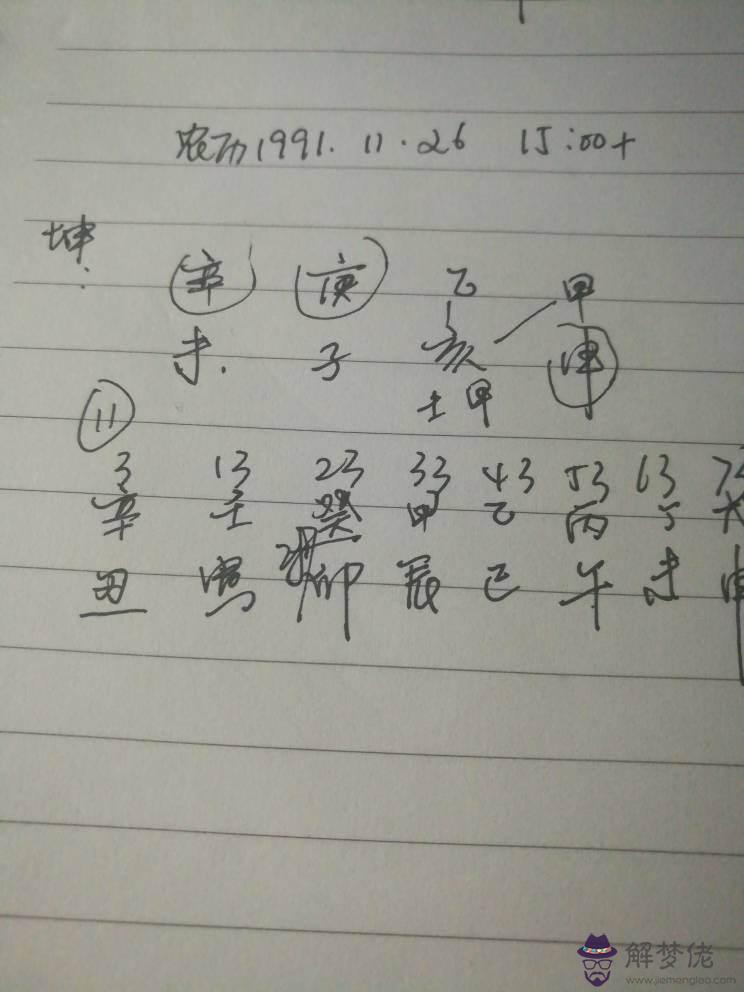 农历1991.11.26 15:00+
坤:
辛 庚 乙 甲
未. 子 亥 申
壬甲
11
3 13 23 33 43 53 63
辛 壬 癸 甲 乙 丙 丁 戊
丑 寅 卯 辰 巳 午 未 申
解梦佬
www.jiemenglao.com